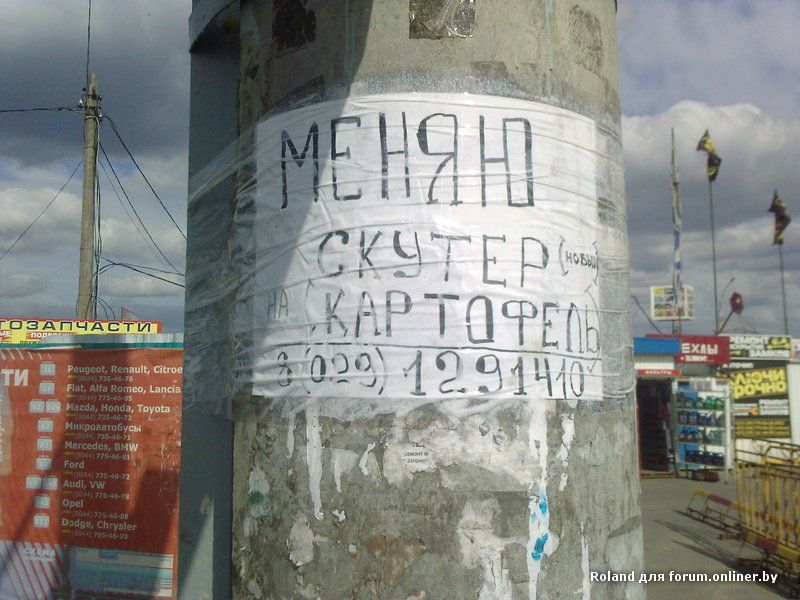 МЕНЯЮ
СКУТЕР (НОВЫЙ)
НА КАРТОФЕЛЬ
8 (029) 1291410
ТОЗАПЧАСТИ
ТИ
Peugeot, Renault, Citroe
(8044) 735-46-76
Fiat, Alfa Romeo, Lancia
(8044) 775-46-85
Mazda, Honda, Toyota
(8044) 735-46-73
Микроавтобусы
(8044) 735-46-71
Mercedes, BMW
(8044) 775-46-81
Ford
(8044) 775-46-72
Audi, VW
(8044) 775-46-78
Opel
(8044) 775-46-88
Dodge, Chrysler
(8044) 795-46-70
СХЕМА
ЕХЛЫ
ФИЛЬТРЫ
РЕМОНТ
ЗАМКОВ
КЛЮЧИ
СРОЧНО
Roland для forum.onliner.by